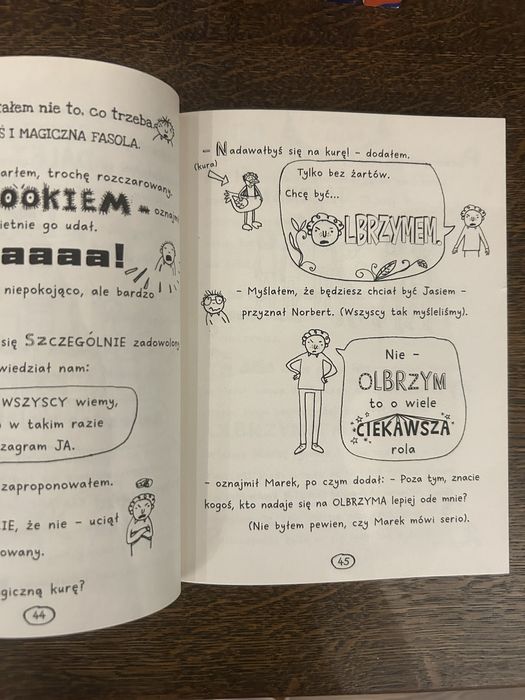 ałem nie to, co trzeba.
Ś I MAGICZNA FASOLA.
arłem, trochę rozczarowany.
OOKIEM – oznajmi
ietnie go udał.
aaaa!
niepokojąco, ale bardzo
się SZCZEGÓLNIE zadowolony
wiedział nam:
WSZYSCY wiemy,
o w takim razie
zagram JA.
zaproponowałem.
IE, że nie – uciął
owany.
giczną kurę?
44
– Nadawałbyś się na kurę! – dodałem.
(kura)
Tylko bez żartów.
Chcę być...
OLBRZYMEM.
– Myślałem, że będziesz chciał być Jasiem –
przyznał Norbert. (Wszyscy tak myśleliśmy).
Nie –
OLBRZYM
to o wiele
CIEKAWSZA
rola
– oznajmił Marek, po czym dodał: – Poza tym, znacie
kogoś, kto nadaje się na OLBRZYMA lepiej ode mnie?
(Nie byłem pewien, czy Marek mówi serio).
45